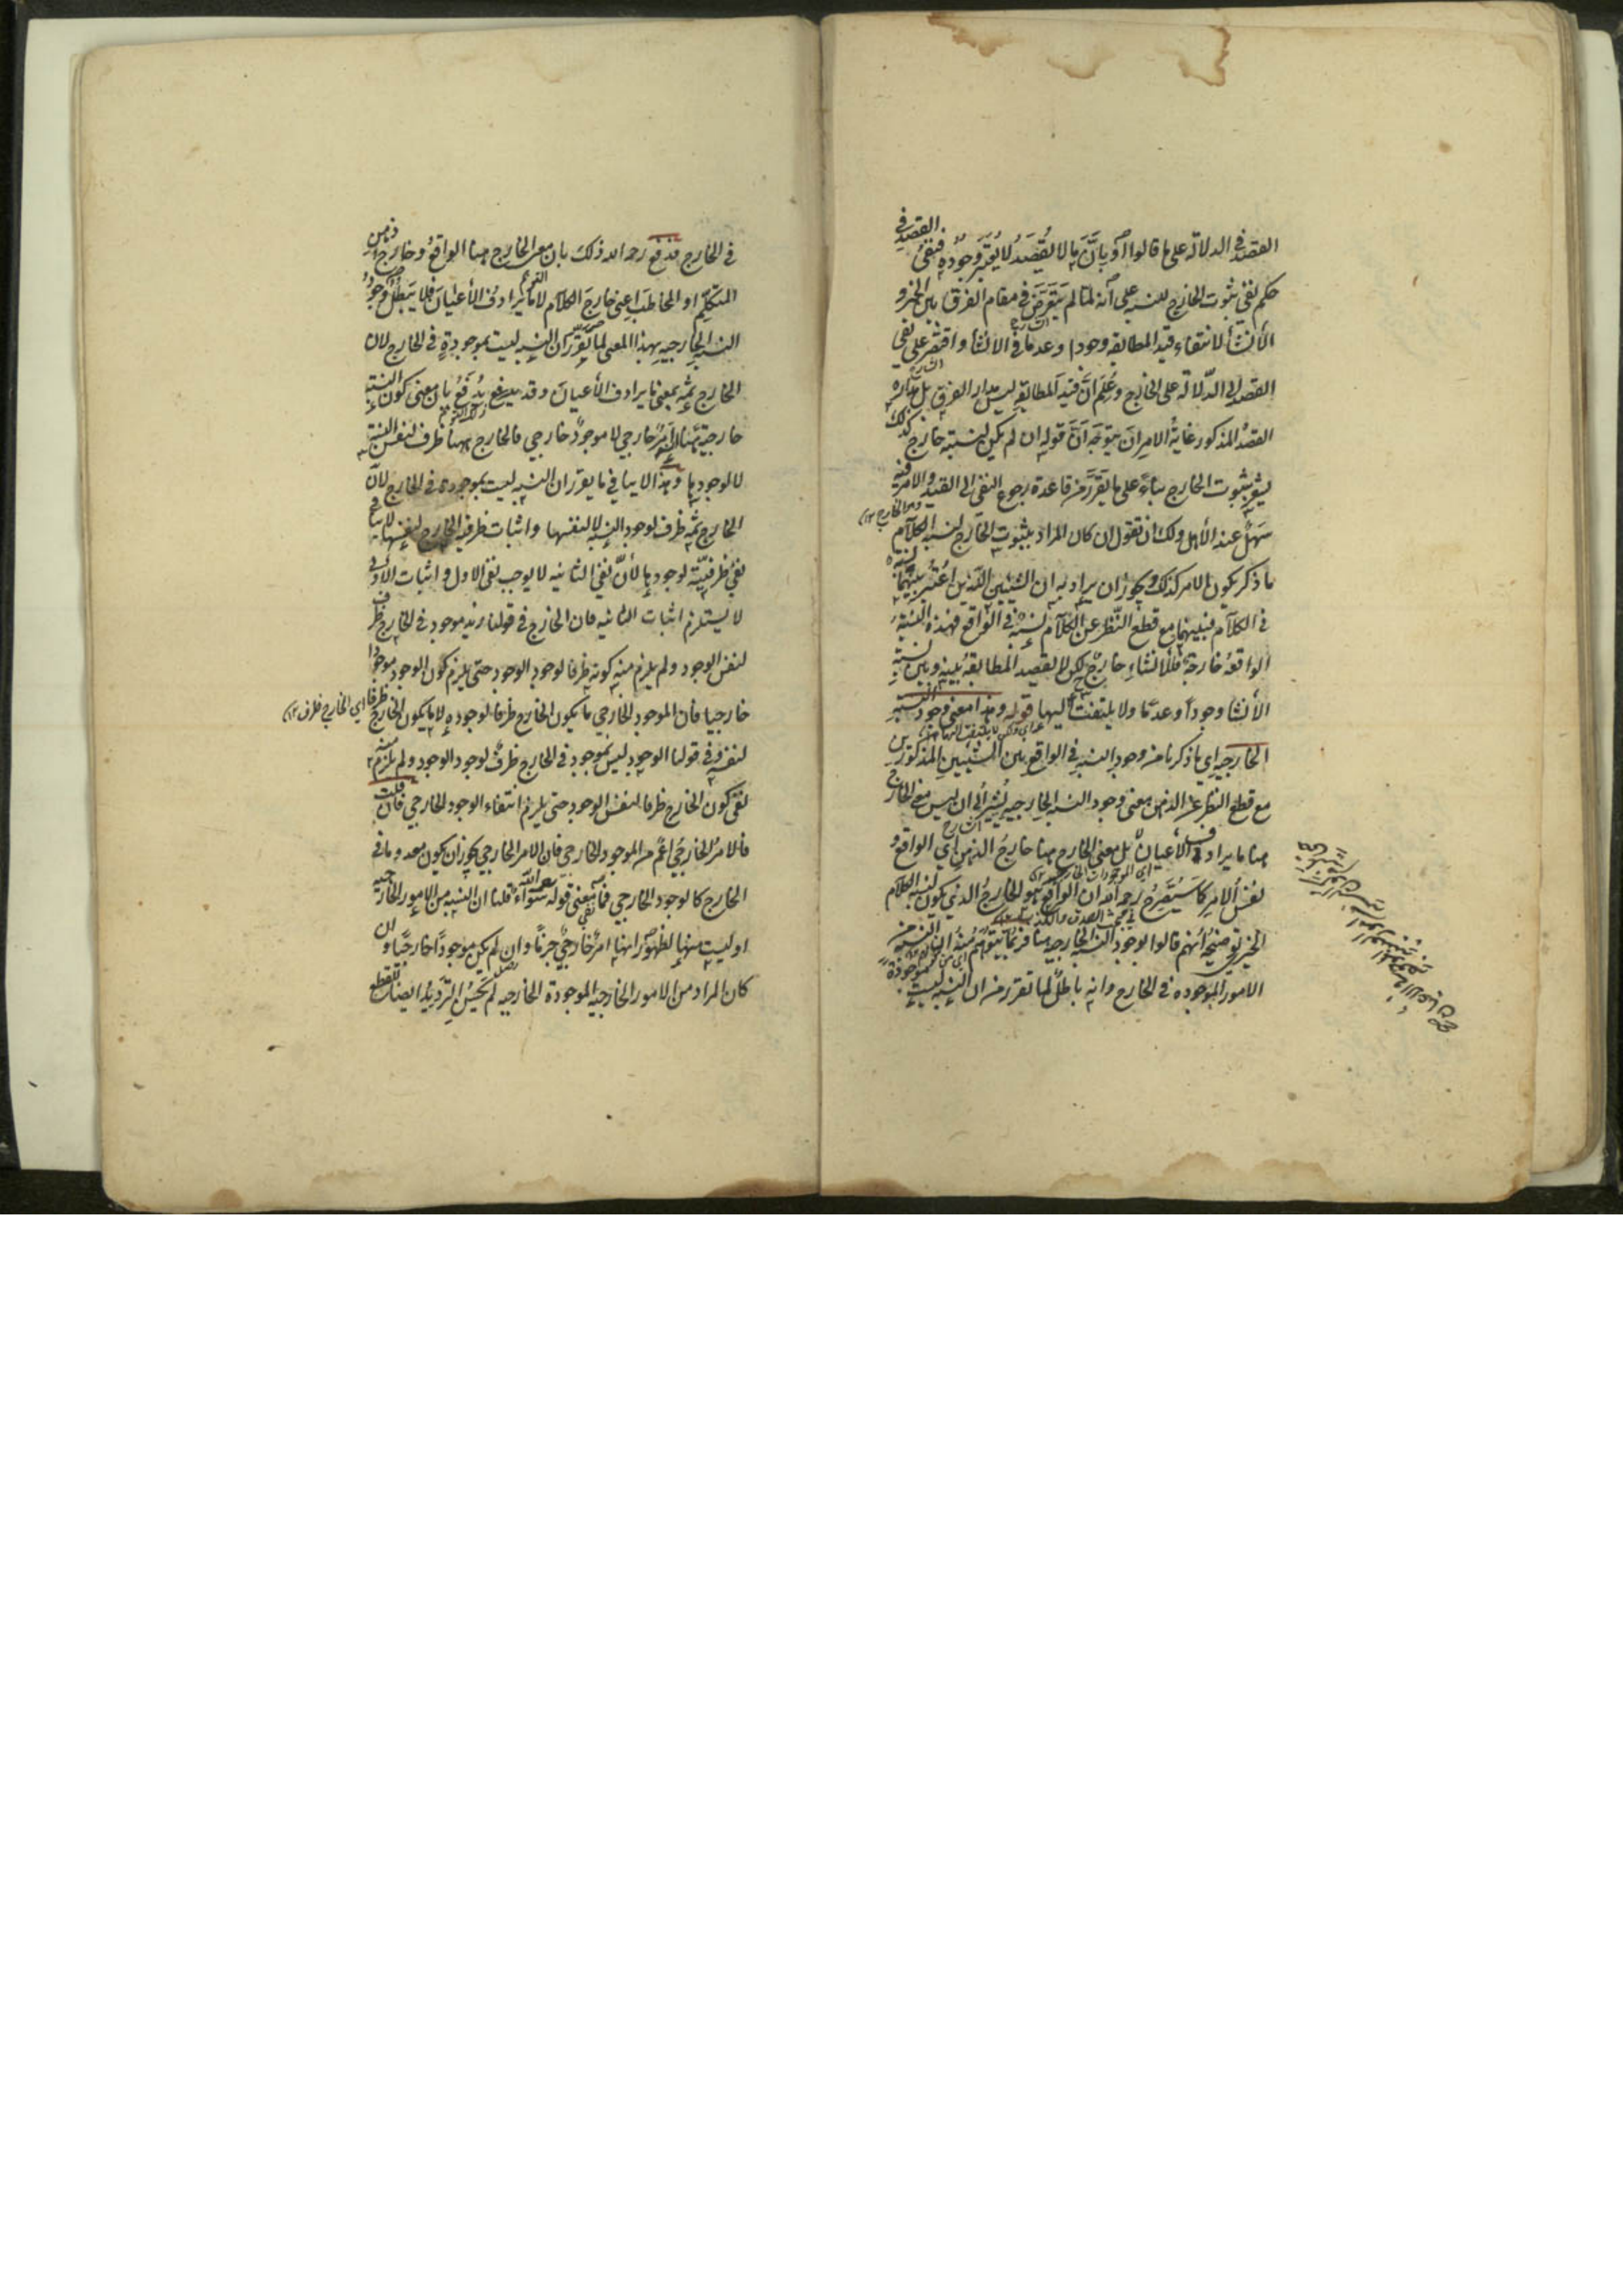 القصد في الدلالة على ما قالوا او بأنّ ما لا يُقصَد لا يُعتبر وجوده فنفى القصد في
حكم نفى ثبوت الخارج للنسبة على أنه لما لم يتعرّض في مقام الفرق بين الخبر و
الأنشأ لانتفاء قيد المطابقه وجودا وعدما في الانشأ واقتصر على نفى
القصد الى الدّلالة على الخارج وعُلِمَ انّ قيد المطابقة ليس مدار الفرق بل مداره
القصدُ المذكور غاية الامر ان يتوجّه أنّ قوله ان لم يكن لنسبته خارج كذلك
يشعر بثبوت الخارج بناءً على ما يقرّر من قاعدة رجوع النفى الى القيد والامر فيه
سَهْلٌ عند الأهل ولك ان تقول ان كان المراد بثبوت الخارج لنسبة الكلام
ما ذكر يكون الامر كذلك ويجوز ان يراد به ان الشيئين اللّذين اعتبر بينهما نسبة
في الكلام فبينهما مع قطع النّظر عن الكلام نسبة في الواقع فهذه النسبة
الواقعة خارجة فللانشاء خارج لكن لا يقصد المطابقة بينه وبين نسبة
الأنشا وجوداً وعدمًا ولا يلتفت اليها قوله وهذا معنى وجود النسبة
الخارجيه اي ما ذكرنا من وجود النسبة في الواقع بين الشيئين المذكورين
مع قطع النظر عن الذهن معنى وجود النسبة الخارجيه يُشير الى ان ليس مع الخارج
هنا ما يرادف الأعيان بل معنى الخارج هنا خارج الذهن اي الواقع و
نفس الامر كما سَيُصَرِّحُ رحمه الله ان الواقع هو الخارج الذي يكون لنسبة الكلام
الخبري توضيحه أنهم قالوا بوجود النسبة الخارجيه هنا فربّما يتوهّم منه ان النسبة من
الامور الموجوده في الخارج وانه باطلٌ لما تقرر من ان النسبة ليست موجودة
في الخارج فدفع رحمه الله ذلك بان معنى الخارج هنا الواقع وخارج ذهن
المتكلّم او المخاطَب اعني خارج الكلام لا ما يرادفُ الأعيان فلا يَبطُلُ وجودُ
النسبة الخارجيه بهذا المعنى لما يقرّر ان النسبة ليست بموجودةٍ في الخارج لان
الخارج ثمّه بمعنى ما يرادف الأعيان وقد يُدفَعُ بان معنى كون النسبة
خارجيّة هنا انه امرٌ خارجي لا موجودٌ خارجي فالخارج ههنا ظرف لنفس النسبة
لا لوجودها وهذا لا ينافي ما يقرر ان النسبة ليست بموجودة في الخارج لانّ
الخارج ثمّه ظرف لوجود النسبة لا لنفسها واثبات ظرفيه الخارج لنفسها لا ينافي
نفىَ ظرفيّته لوجودها لأنّ نفىَ الثانيه لا يوجب نفى الاول واثبات الأولى
لا يستلزم اثبات الثانيه فان الخارج في قولنا زيد موجود في الخارج ظرف
لنفس الوجود ولم يلزم منه كونه ظرفا لوجود الوجود حتى يلزم كون الوجود موجودًا
خارجيا فان الموجود الخارجي ما يكون الخارج ظرفًا لوجوده لا ما يكون الخارج ظرفا اي الخارج ظرف ١٢
لنفسه وفي قولنا الوجود ليس بموجود في الخارج ظرفٌ لوجود الوجود ولم يلزم منه
نفى كون الخارج ظرفا لنفس الوجود حتى يلزم انتفاء الوجود الخارجي فان قلت
فالامرُ الخارجيُّ اعمّ من الموجود الخارجي فان الامر الخارجي يجوز ان يكون معدوما في
الخارج كالوجود الخارجي فما معنى قوله سواءٌ قلنا ان النسبة من الامور الخارجيه
او ليست منها لظهور انها امرٌ خارجيٌّ جزمًا وان لم يكن موجودًا خارجيًّا وان
كان المراد من الامور الخارجيه الموجودة الخارجيه لم يَحسُن التّرديدُ ايضا للقطع